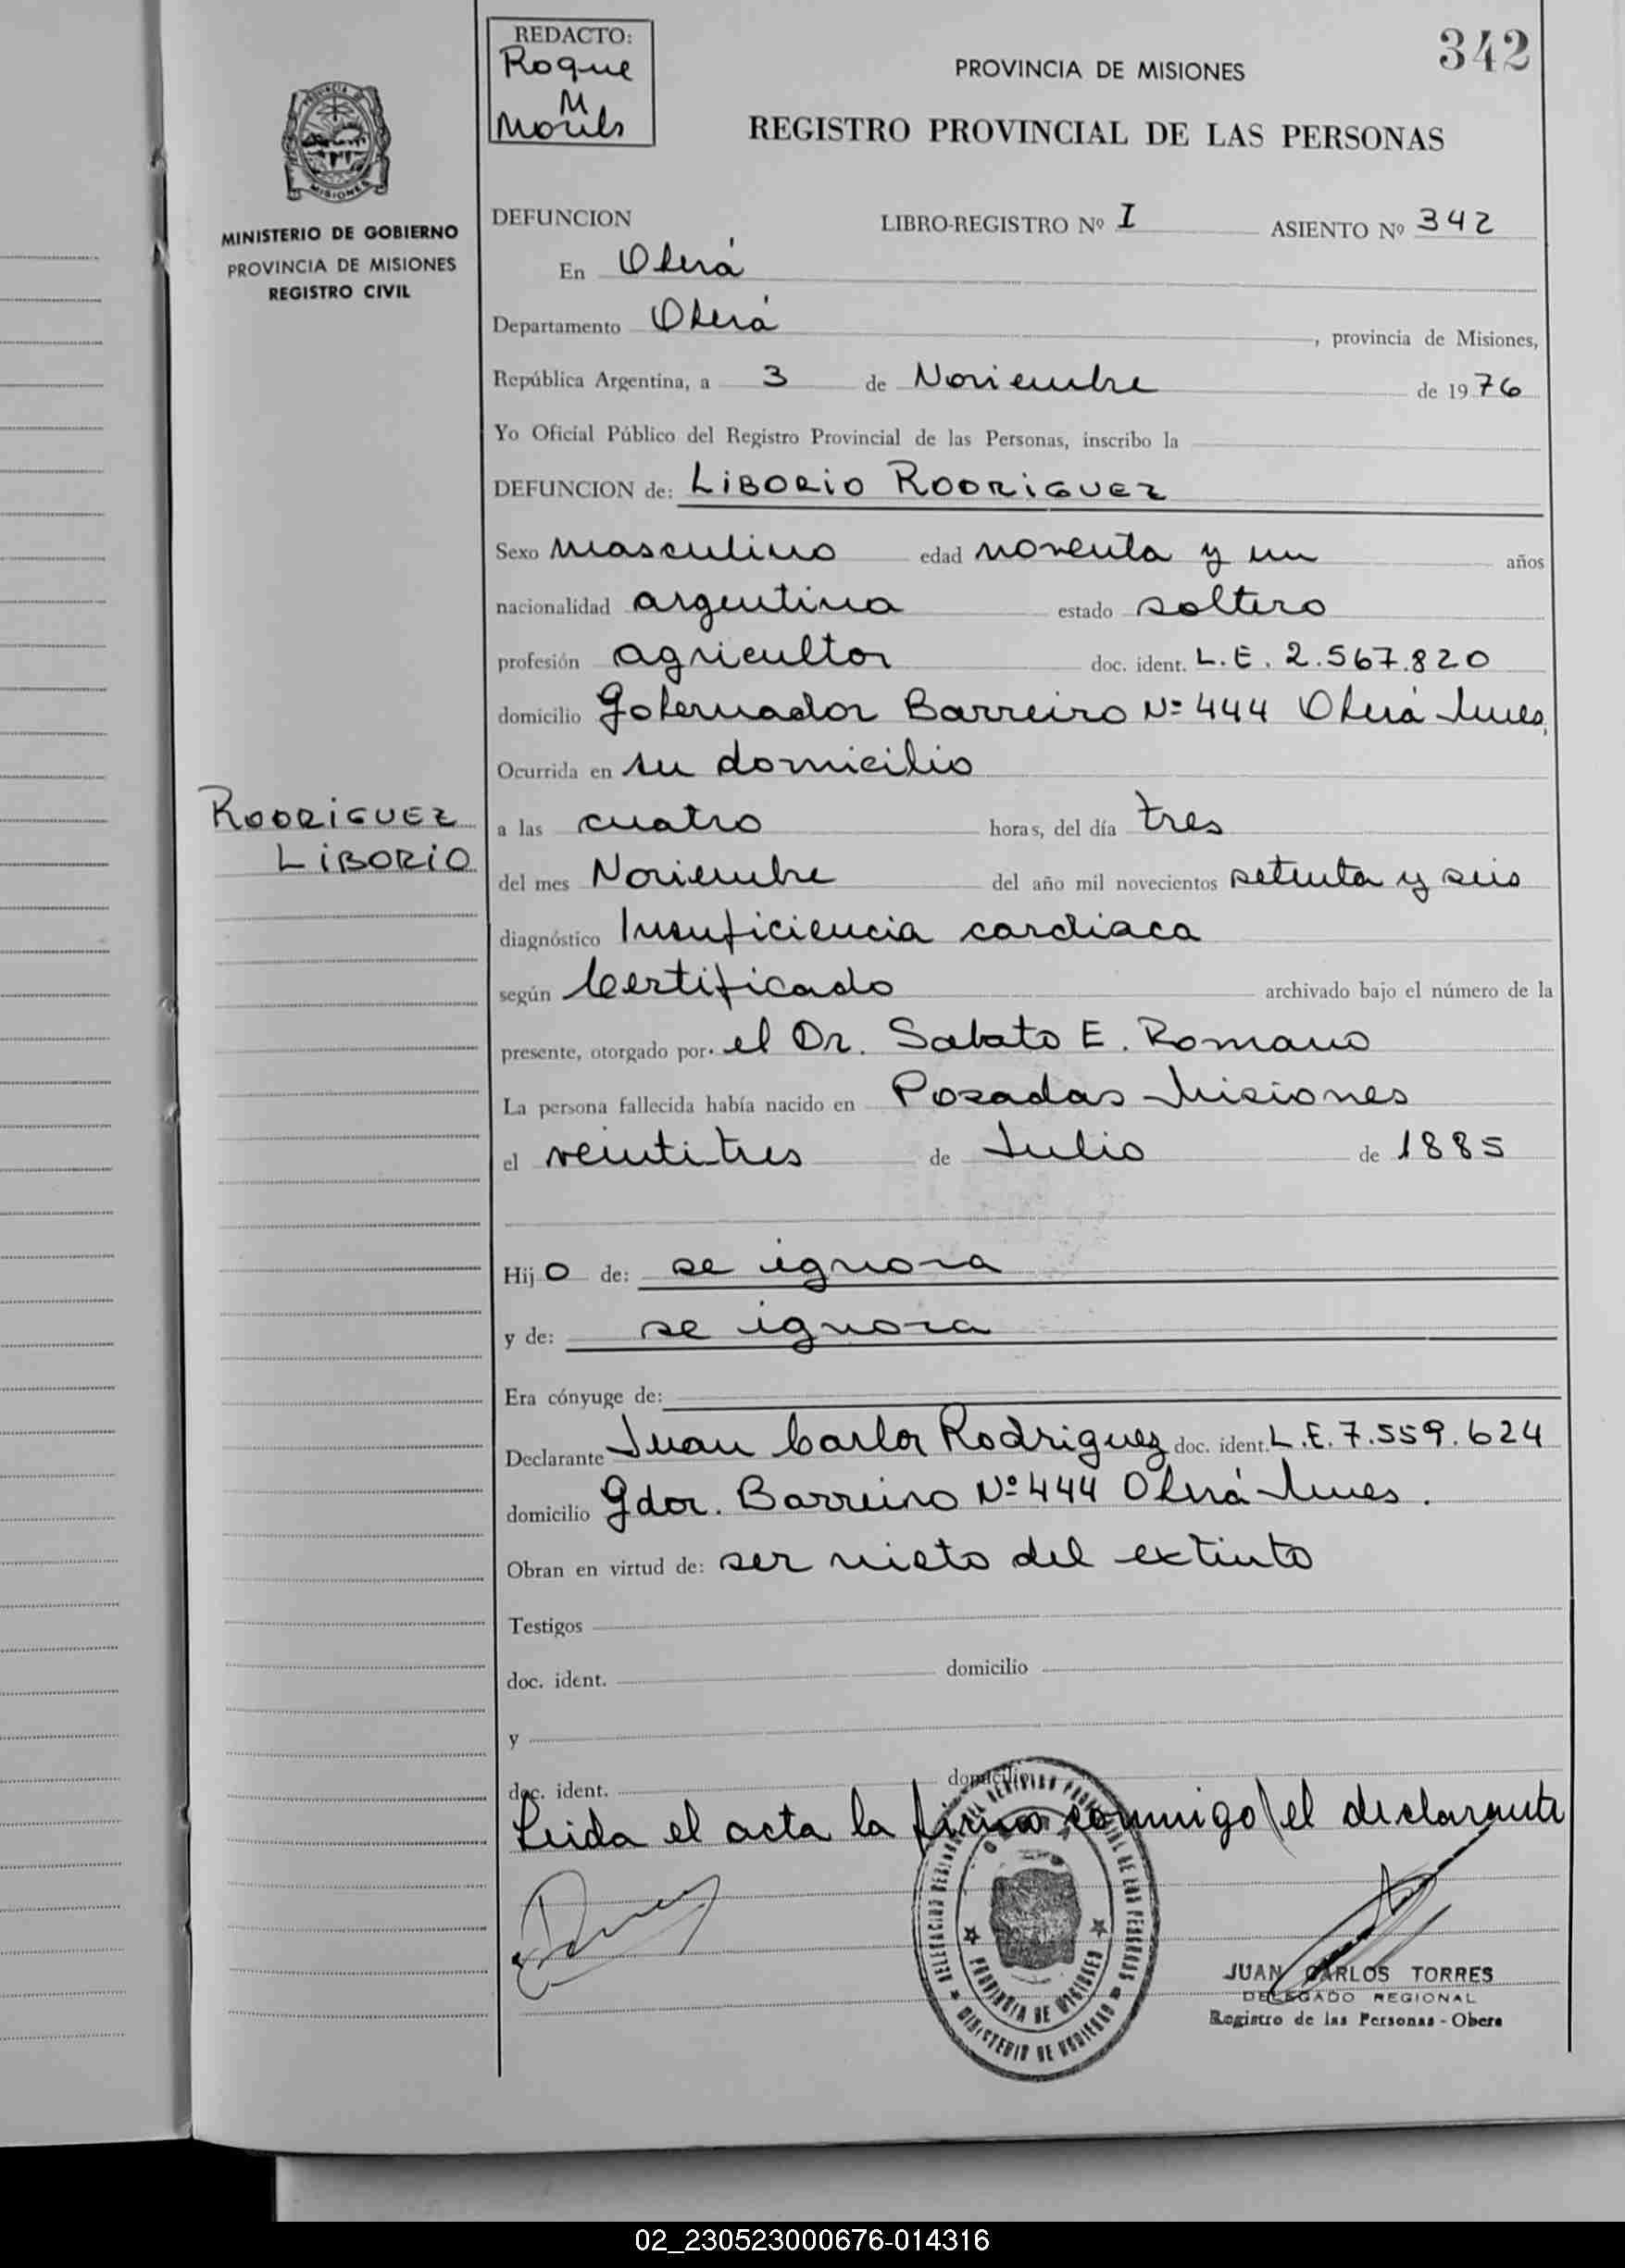 REDACTO:
Roque
M
342
PROVINCIA DE MISIONES
REGISTRO PROVINCIAL DE LAS PERSONAS
MISIONES
MINISTERIO DE GOBIERNO
PROVINCIA DE MISIONES
REGISTRO CIVIL
DEFUNCION LIBRO-REGISTRO Nº I ASIENTO Nº 342
En Oberá
Departamento Oberá, provincia de Misiones,
República Argentina, a 3 de Noviembre de 1976
Yo Oficial Público del Registro Provincial de las Personas, inscribo la
DEFUNCION de: LIBORIO RODRIGUEZ
Sexo masculino edad noventa y un años
nacionalidad argentina estado soltero
profesión agricultor doc. ident. L.E. 2.567.820
domicilio Gobernador Barreiro Nº 444 Oberá Mnes,
Ocurrida en su domicilio
RODRIGUEZ
LIBORIO
a las cuatro horas, del día tres
del mes Noviembre del año mil novecientos setenta y seis
diagnóstico Insuficiencia cardiaca
según Certificado archivado bajo el número de la
presente, otorgado por. el Dr. Sabato E. Romano
La persona fallecida había nacido en Posadas Misiones
el veintitres de Julio de 1885
Hijo de: se ignora
y de: se ignora
Era cónyuge de:
Declarante Juan Carlos Rodriguez doc. ident. L.E. 7.559.624
domicilio Gdor. Barreiro Nº 444 Oberá Mnes.
Obran en virtud de: ser nieto del extinto
Testigos
doc. ident. domicilio
y
doc. ident. domicilio
Leida el acta la firma conmigo el declarante
PROVINCIA DE MISIONES
MINISTERIO DE GOBIERNO
JUAN CARLOS TORRES
DELEGADO REGIONAL
Registro de las Personas - Obera
02_230523000676-014316